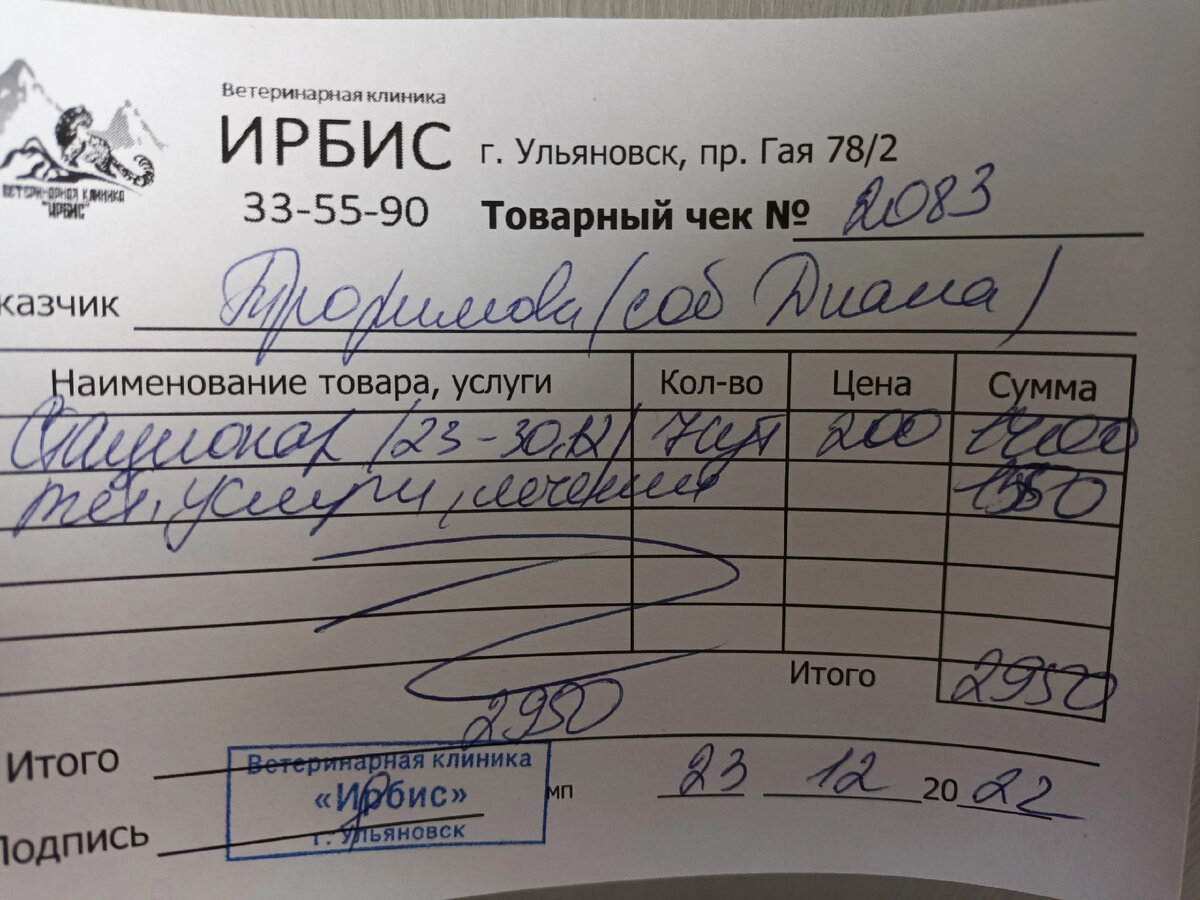 Ветеринарная клиника
ИРБИС г. Ульяновск, пр. Гая 78/2
ВЕТЕРИНАРНАЯ КЛИНИКА
"ИРБИС"
33-55-90 Товарный чек № 2083
казчик Трофимова (соб Диана)
Наименование товара, услуги Кол-во Цена Сумма
Стационар (23-30.12) 7сут 200 1400
вет. услуги, лечение 1550
Итого 2950
Итого 2950
Ветеринарная клиника
«Ирбис»
г. Ульяновск
мп 23 12 2022
Подпись